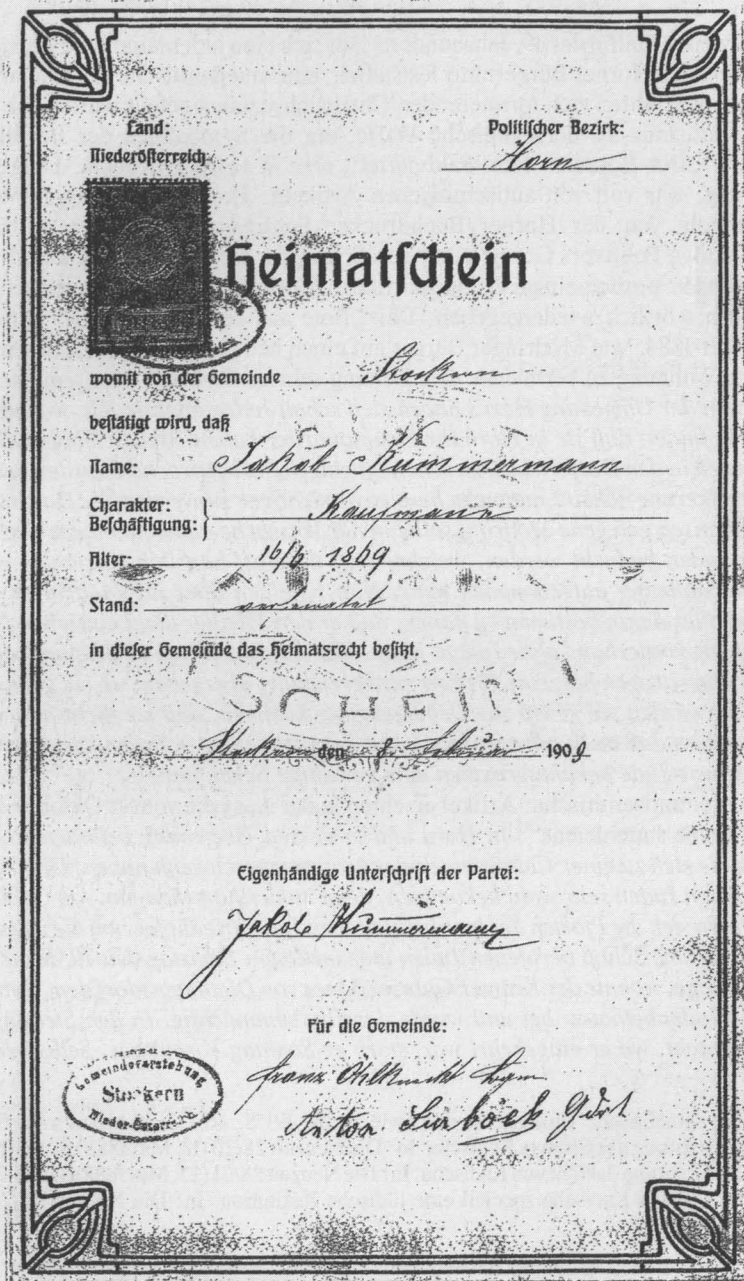 Land:
Niederösterreich
Politischer Bezirk:
Horn
Heimatschein
womit von der Gemeinde Stockern
bestätigt wird, daß
Name: Jakob Kummermann
Charakter:
Beschäftigung: } Kaufmann
Alter: 16/6 1869
Stand: verheiratet
in dieser Gemeinde das Heimatsrecht besitzt.
SCHEIN
Stockern den 8. Februar 1909
Eigenhändige Unterschrift der Partei:
Jakob Kummermann
Für die Gemeinde:
Franz Bgm
Anton Surböck Gdrt
Gemeindevorstehung
Stockern
Nieder-Österreich